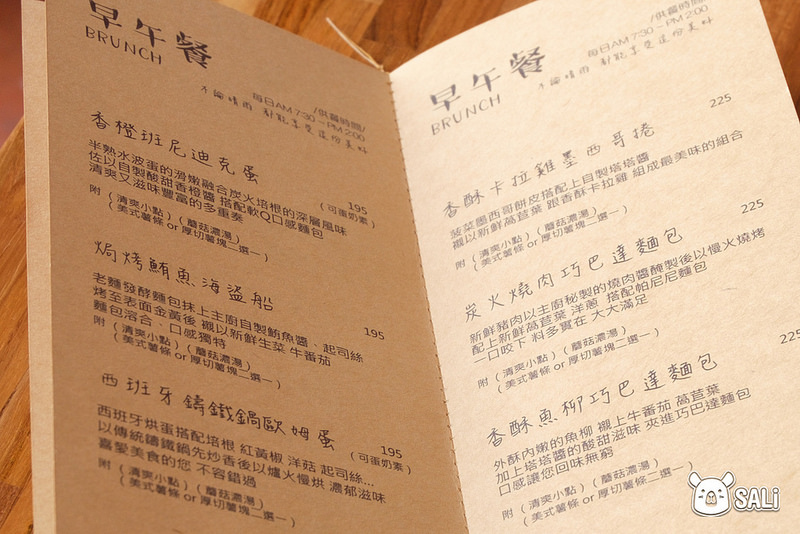 早午餐
BRUNCH
/供餐時間/
每日AM 7:30 ~ PM 2:00
不論晴雨 都能享受這份美味
香橙班尼迪克蛋
195
半熟水波蛋的滑嫩融合炭火培根的深層風味
(可蛋奶素)
佐以自製酸甜香橙醬 搭配軟Q口感麵包
清爽又滋味豐富的多重奏
附 (清爽小點)(蘑菇濃湯)
(美式薯條 or 厚切薯塊二選一)
焗烤鮪魚海盜船
195
老麵發酵麵包抹上主廚自製鮪魚醬、起司絲
烤至表面金黃後 襯以新鮮生菜 牛番茄
麵包溶合、口感獨特
附 (清爽小點)(蘑菇濃湯)
(美式薯條 or 厚切薯塊二選一)
西班牙鑄鐵鍋歐姆蛋
195
西班牙烘蛋搭配培根 紅黃椒 洋菇 起司絲...
(可蛋奶素)
以傳統鑄鐵鍋先炒香後以爐火慢烘 濃郁滋味
喜愛美食的您 不容錯過
附 (清爽小點)(蘑菇濃湯)
(美式薯條 or 厚切薯塊二選一)
早午餐
BRUNCH
/供餐時間/
每日AM 7:30 ~ PM 2:00
不論晴雨 都能享受這份美味
香酥卡拉雞墨西哥捲
225
菠菜墨西哥餅皮搭配上自製塔塔醬
襯以新鮮萵苣葉 跟香酥卡拉雞 組成最美味的組合
附 (清爽小點)(蘑菇濃湯)
(美式薯條 or 厚切薯塊二選一)
炭火燒肉巧巴達麵包
225
新鮮豬肉以主廚秘製的燒肉醬醃製後以慢火燒烤
配上新鮮萵苣葉 洋蔥 搭配帕尼尼麵包
一口咬下 料多實在 大大滿足
附 (清爽小點)(蘑菇濃湯)
(美式薯條 or 厚切薯塊二選一)
香酥魚柳巧巴達麵包
225
外酥內嫩的魚柳 襯上牛番茄 萵苣葉
加上塔塔醬的酸甜滋味 夾進巧巴達麵包
口感讓您回味無窮
附 (清爽小點)(蘑菇濃湯)
(美式薯條 or 厚切薯塊二選一)
SALi